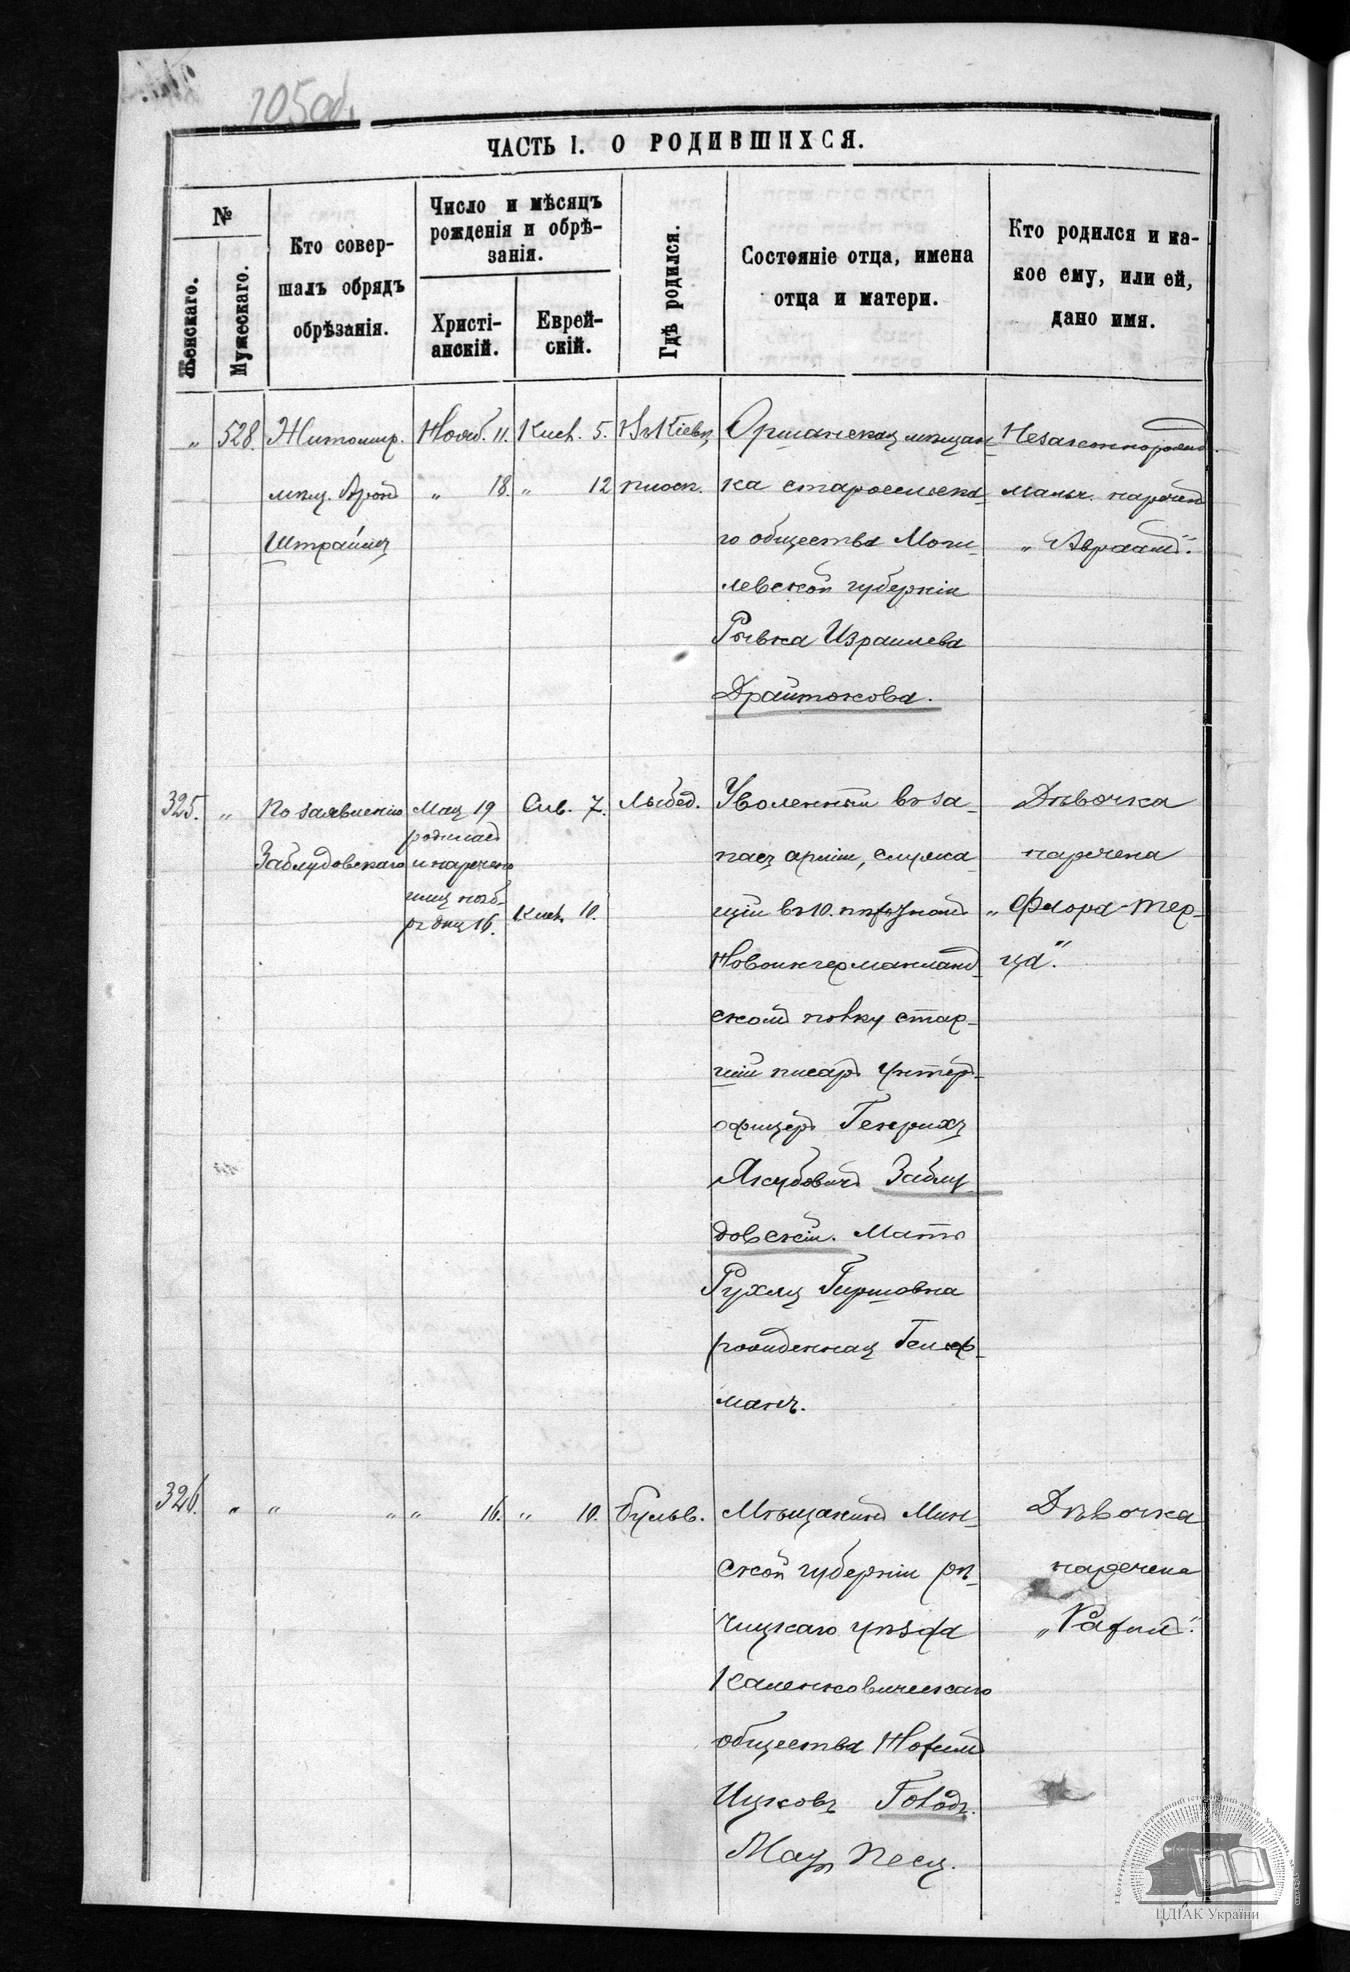 105об.
ЧАСТЬ I. О РОДИВШИХСЯ.
№
Женскаго.
Мужескаго.
Кто совер-
шалъ обрядъ
обрѣзанія.
Число и мѣсяцъ
рожденія и обрѣ-
занія.
Христі-
анскій.
Еврей-
скій.
Гдѣ родился.
Состояніе отца, имена
отца и матери.
Кто родился и ка-
кое ему, или ей,
дано имя.
„ 528. Житомир.
мѣщ. Аронъ
Нояб. 11.
„ 18.
Кисл. 5.
„ 12
плоск.
Оршанская мѣщан-
ка старосельска-
го общества Моги-
левской губерніи
Рывка Израилева
Незаконнорожд.
мальч. нареченъ
„Авраамъ".
325. „
По заявленію
Заблудовскаго
Мая 19
родилась
и наречена
16.
Сив. 7.
Кисл. 10.
Лыбед.
Уволенный въ за
пасъ арміи, служа
щій въ 10. пѣхотномъ
Новоингерманланд-
скомъ полку стар-
шій писарь унтеръ-
офицеръ Генрихъ
Якубовичъ Заблу
довскій. Мать
Рухля Гиршовна
рожденная
манъ.
Дѣвочка
наречена
„Флора-Тер-
ца".
326. „ „ „ „ 16. „ 10. Бульв.
Мѣщанинъ Мин-
ской губерніи рѣ-
чицкаго уѣзда
Каленковическаго
общества
Ицковъ
Мать Песя.
Дѣвочка
наречена